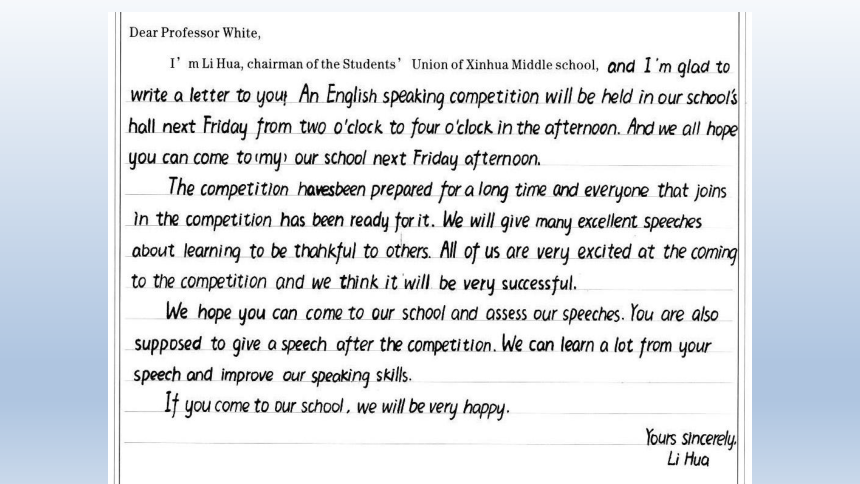 Dear Professor White,
I'm Li Hua, chairman of the Students' Union of Xinhua Middle school, and I'm glad to
write a letter to you! An English speaking competition will be held in our school's
hall next Friday from two o'clock to four o'clock in the afternoon. And we all hope
you can come to (my) our school next Friday afternoon.
The competition has been prepared for a long time and everyone that joins
in the competition has been ready for it. We will give many excellent speeches
about learning to be thahkful to others. All of us are very excited at the coming
to the competition and we think it will be very successful.
We hope you can come to our school and assess our speeches. You are also
supposed to give a speech after the competition. We can learn a lot from your
speech and improve our speaking skills.
If you come to our school, we will be very happy.
Yours sincerely,
Li Hua